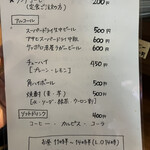 200円
(定食につけた方)
アルコール
スーパードライ生ビール 500円
アサヒスーパードライ中瓶 600円
サッポロ黒ラガービール 600円
チューハイ 450円
[プレーン・レモン]
角ハイボール 500円
焼酎(麦・芋) 500円
(水・ソーダ・緑茶・ウーロン割)
ソフトドリンク 400円
コーヒー カルピス コーラ